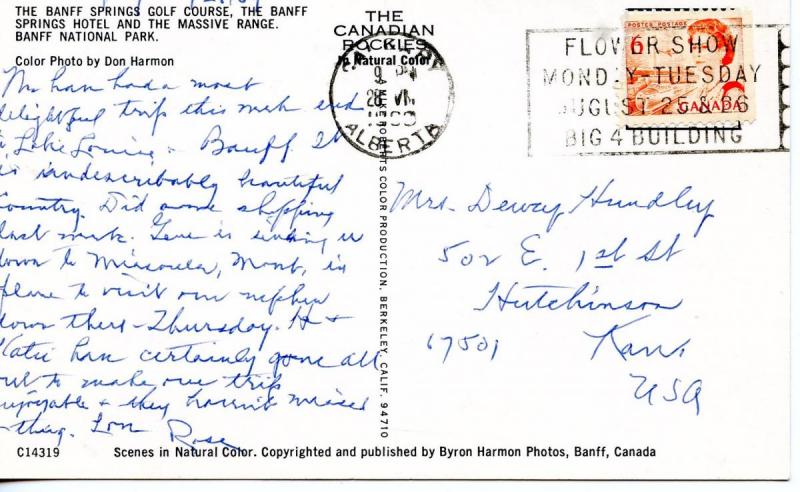 THE BANFF SPRINGS GOLF COURSE, THE BANFF
SPRINGS HOTEL AND THE MASSIVE RANGE.
BANFF NATIONAL PARK.
Color Photo by Don Harmon
had a most
delightful trip this week end
to Lake Louise & Banff. It
is indescribably beautiful
country. Did some shopping
last week. Gene is sending us
down to Missoula, Mont, in
plane to visit our nephew
down there - Thursday. H &
Katie have certainly gone all
out to make our trip
enjoyable & they haven't missed
a thing. Love Rose
C14319
Scenes in Natural Color. Copyrighted and published by Byron Harmon Photos, Banff, Canada
THE
CANADIAN
ROCKIES
In Natural Color
COLOR PRODUCTION, BERKELEY, CALIF. 94710
CALGARY
9 PM
28 VII
1969
ALBERTA
FLOWER SHOW
MONDAY-TUESDAY
AUGUST 25 & 26
BIG 4 BUILDING
POSTES POSTAGE
6
CANADA
Mrs. Dewey Hundley
502 E. 1st St
Hutchinson
67501 Kans.
USA